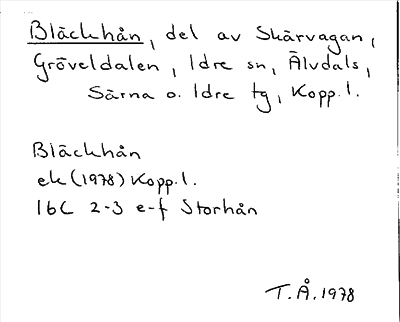 Bläckhån, del av Skärvagan,
Gröveldalen, Idre sn, Älvdals,
Särna o. Idre tg, Kopp.l.
Bläckhån
ek (1978) Kopp.l.
16C 2-3 e-f Storhån
T.Å. 1978